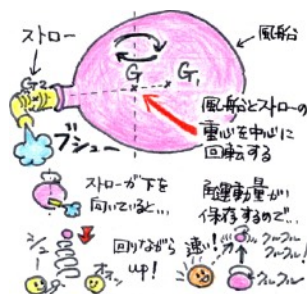 ストロー
風船
G₂
G
G₁
ブシュー
風船とストローの
重心を中心に
回転する
ストローが下を
向いていると…
角運動量が
保存するので…
シュー
オォン
回りながら
up!
速い!
クルクル
クルクル!
クルクル